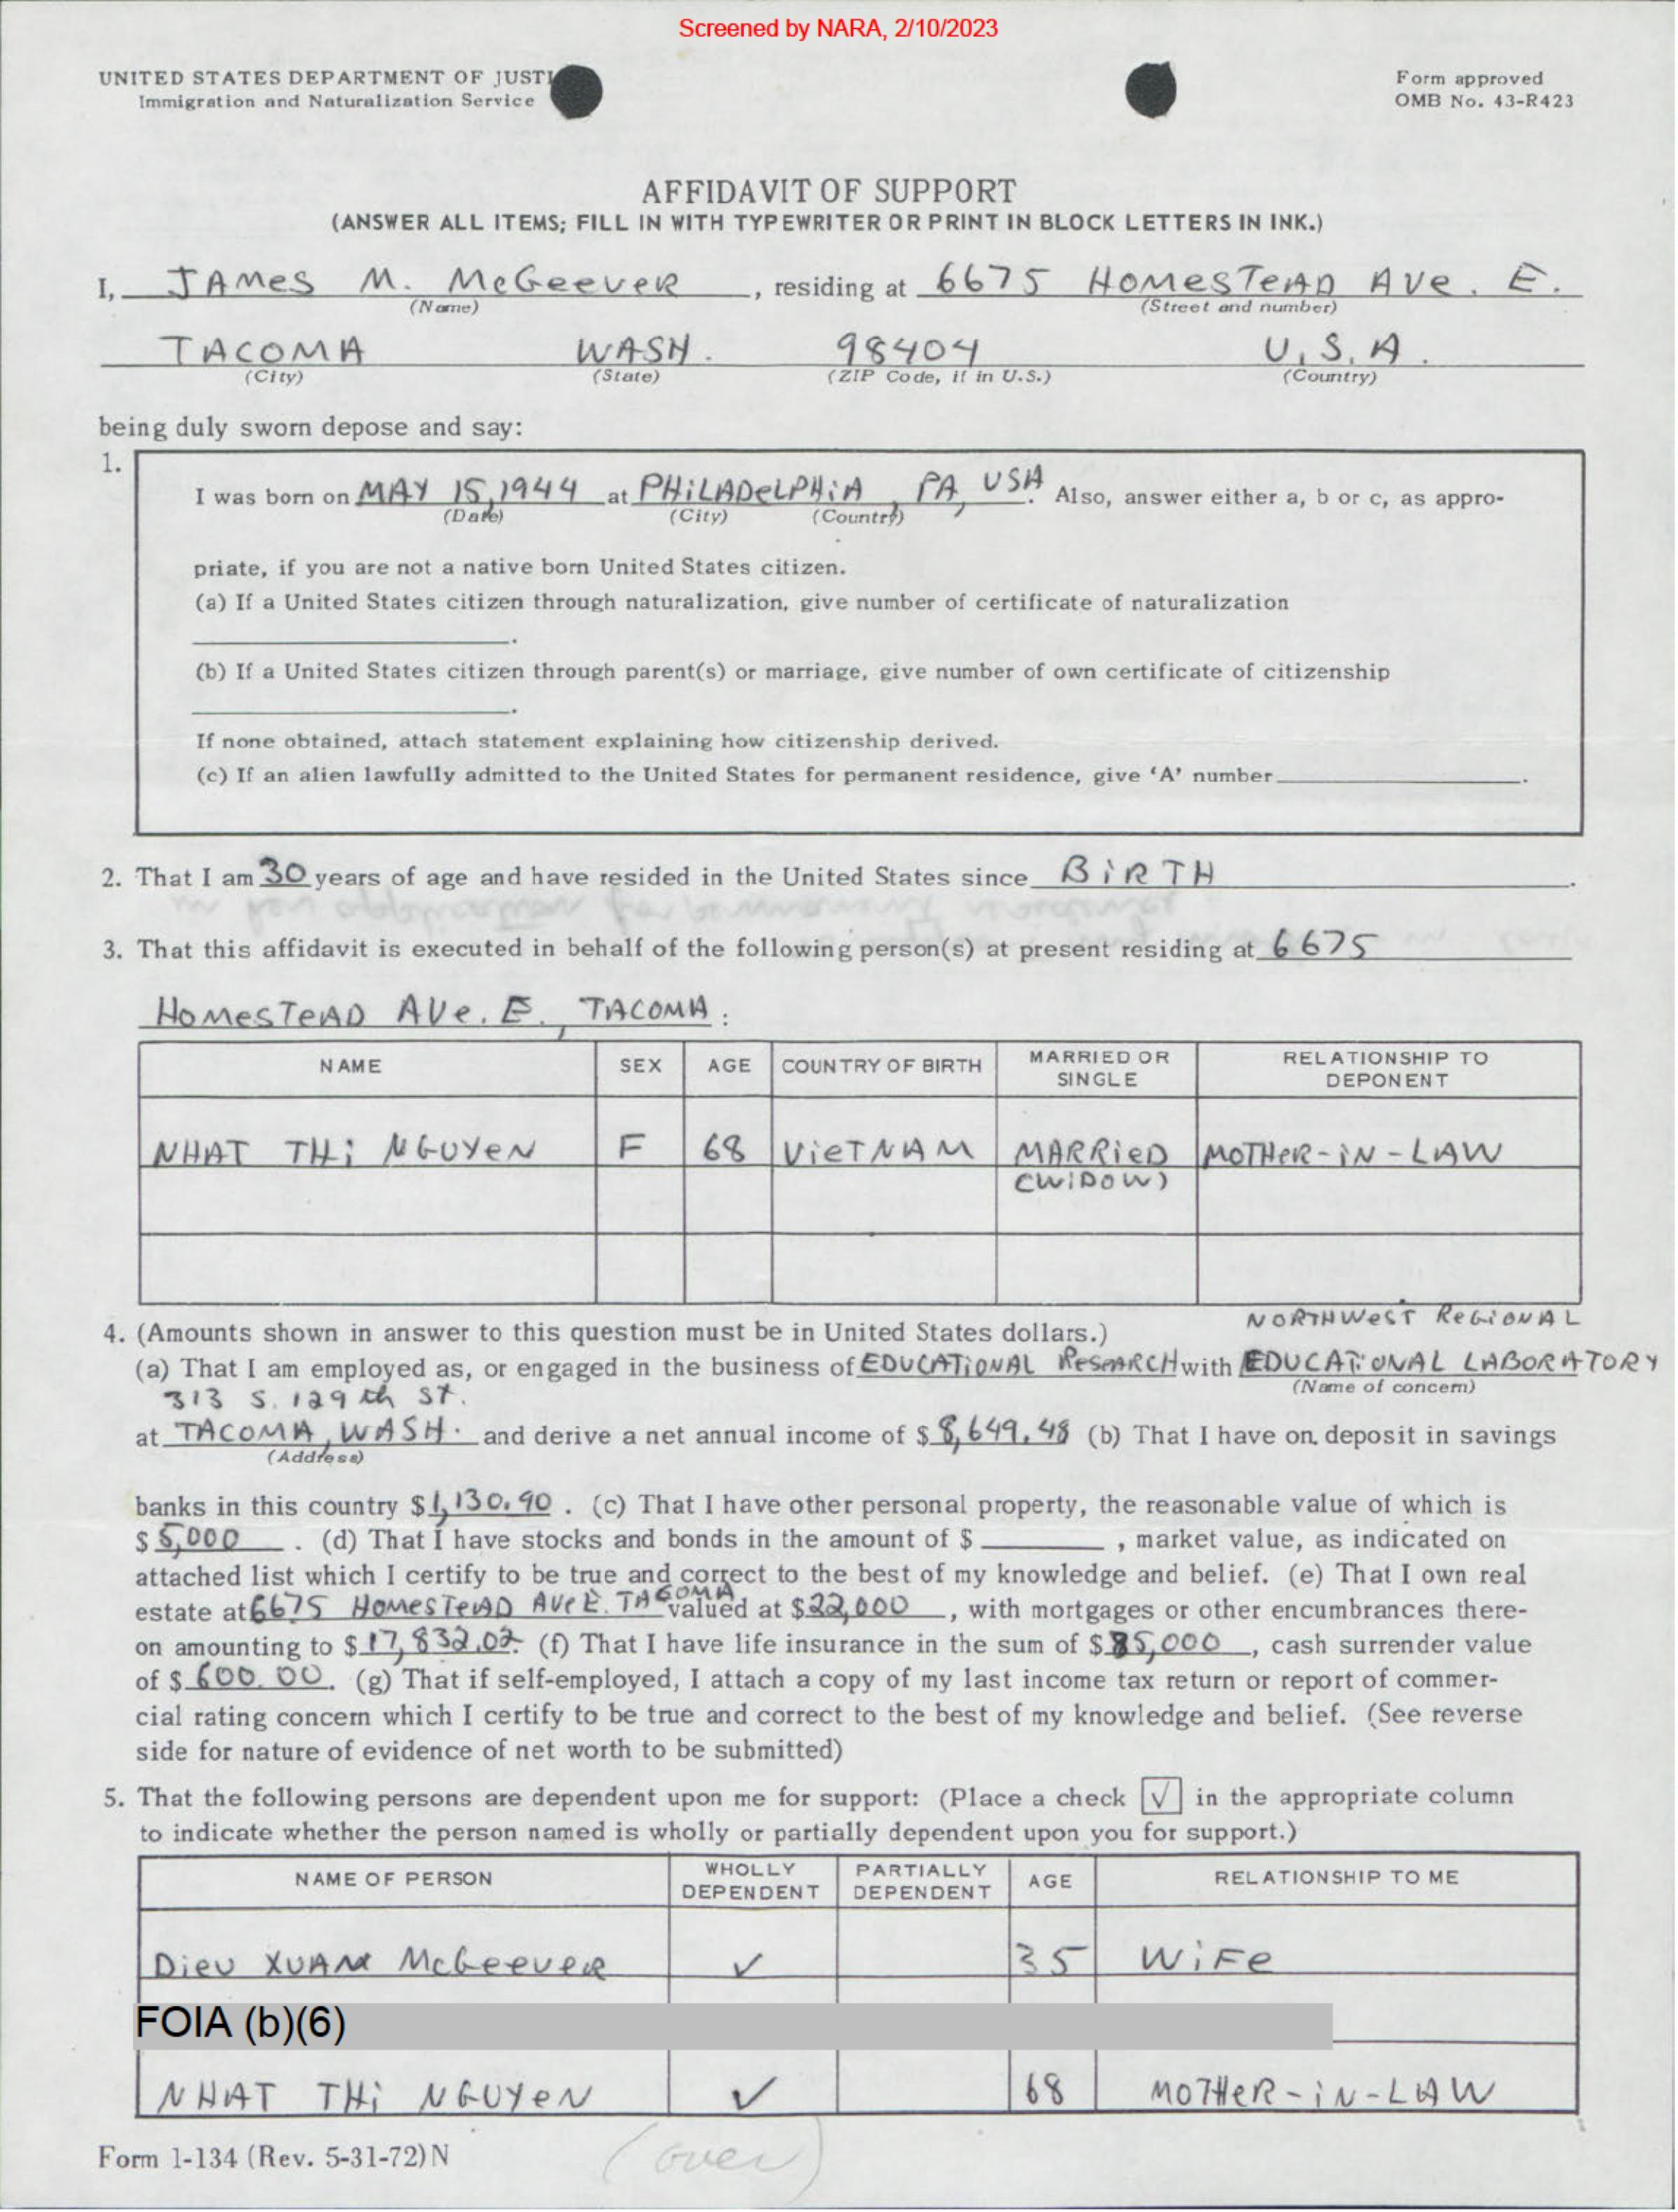 Screened by NARA, 2/10/2023
UNITED STATES DEPARTMENT OF JUSTI
Immigration and Naturalization Service
Form approved
OMB No. 43-R423
AFFIDAVIT OF SUPPORT
(ANSWER ALL ITEMS; FILL IN WITH TYPEWRITER OR PRINT IN BLOCK LETTERS IN INK.)
I, JAMES M. McGeeveR, residing at 6675 HOMESTEAD AVe. E.
(Name) (Street and number)
TACOMA WASH. 98404 U.S.A.
(City) (State) (ZIP Code, if in U.S.) (Country)
being duly sworn depose and say:
1.
I was born on MAY 15, 1944 at PHiLADeLPHiA, PA, USA. Also, answer either a, b or c, as appro-
(Date) (City) (Country)
priate, if you are not a native born United States citizen.
(a) If a United States citizen through naturalization, give number of certificate of naturalization
.
(b) If a United States citizen through parent(s) or marriage, give number of own certificate of citizenship
.
If none obtained, attach statement explaining how citizenship derived.
(c) If an alien lawfully admitted to the United States for permanent residence, give 'A' number.
2. That I am 30 years of age and have resided in the United States since BiRTH.
3. That this affidavit is executed in behalf of the following person(s) at present residing at 6675
HOMESTEAD AVe. E., TACOMA:
NAME SEX AGE COUNTRY OF BIRTH MARRIED OR SINGLE RELATIONSHIP TO DEPONENT
NHAT THi NGUYeN F 68 VieTNAM MARRieD MOTHeR-iN-LAW
(WiDOW)
NORTHWeST ReGiONAL
4. (Amounts shown in answer to this question must be in United States dollars.)
(a) That I am employed as, or engaged in the business of EDUCATiONAL ReSeARCH with EDUCATiONAL LABORATORY
(Name of concern)
313 S. 129th St.
at TACOMA, WASH. and derive a net annual income of $8,649.48 (b) That I have on deposit in savings
(Address)
banks in this country $1,130.90. (c) That I have other personal property, the reasonable value of which is
$5,000. (d) That I have stocks and bonds in the amount of $ , market value, as indicated on
attached list which I certify to be true and correct to the best of my knowledge and belief. (e) That I own real
estate at 6675 HOMeSTeAD AVe E. TACOMA valued at $22,000, with mortgages or other encumbrances there-
on amounting to $17,832.02. (f) That I have life insurance in the sum of $ 85,000, cash surrender value
of $600.00. (g) That if self-employed, I attach a copy of my last income tax return or report of commer-
cial rating concern which I certify to be true and correct to the best of my knowledge and belief. (See reverse
side for nature of evidence of net worth to be submitted)
5. That the following persons are dependent upon me for support: (Place a check √ in the appropriate column
to indicate whether the person named is wholly or partially dependent upon you for support.)
NAME OF PERSON WHOLLY DEPENDENT PARTIALLY DEPENDENT AGE RELATIONSHIP TO ME
Dieu XUAN McGeeveR ✓ 35 WiFe
FOIA (b)(6)
NHAT THi NGUYeN ✓ 68 MOTHeR-iN-LAW
Form I-134 (Rev. 5-31-72) N
(over)